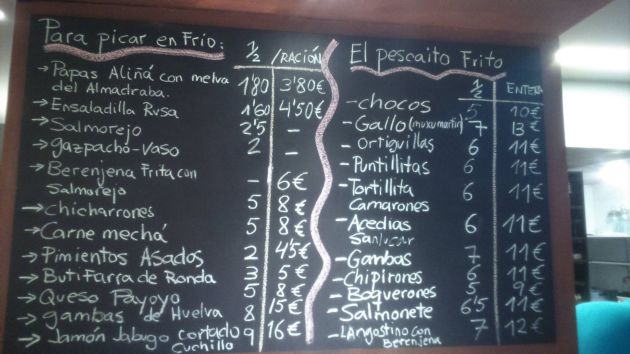 Para picar en Frío: 1/2 /RACIÓN
→ Papas Aliñá con melva
del Almadraba. 1'80 3'80€
→ Ensaladilla Rusa 1'60 4'50€
→ Salmorejo 2'5 –
→ gazpacho-vaso 2 –
→ Berenjena Frita con
Salmorejo – 6€
→ Chicharrones 5 8€
→ Carne mechá 5 8€
→ Pimientos Asados 2 4'5€
→ Butifarra de Ronda 3 5€
→ Queso Payoyo 5 8€
→ gambas de Huelva 8 15€
→ Jamón Jabugo cortado
cuchillo 9 16€
El pescaito Frito
1/2 ENTERA
- chocos 5 10€
- Gallo (muxumartin) 7 13€
- ortiguillas 6 11€
- Puntillitas 6 11€
- Tortillita
Camarones 6 11€
- Acedias
Sanlucar 6 11€
- Gambas 7 11€
- Chipirones 6 11€
- Boquerones 5 9€
- Salmonete 6'5 11€
- LAngostino con
Berenjena 7 12€